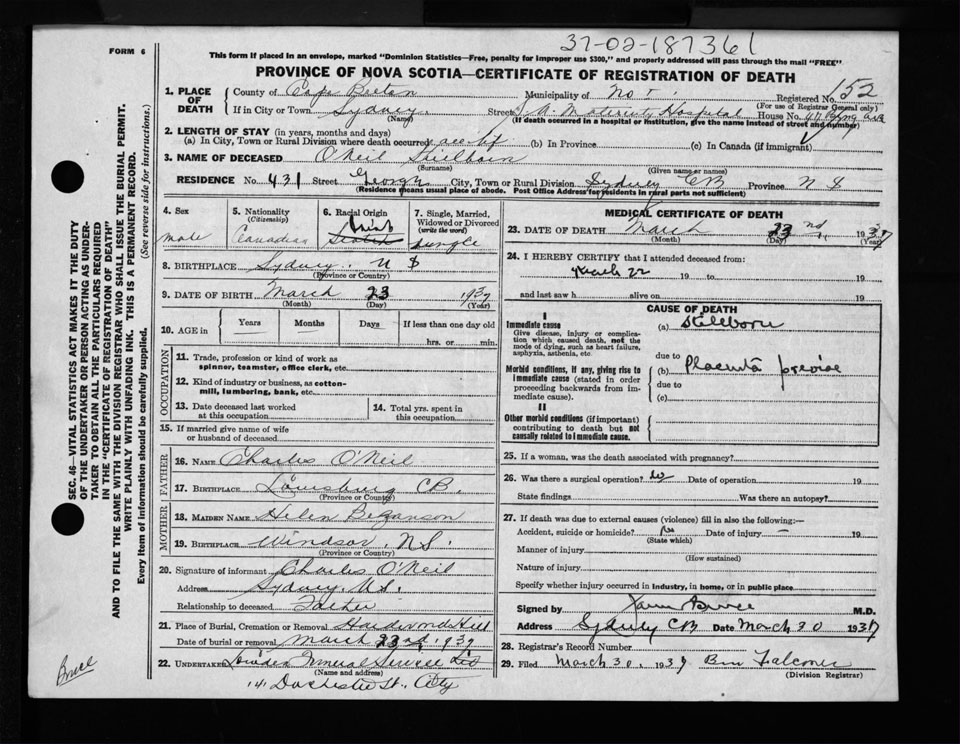 37-02-187361
FORM 6
This form if placed in an envelope, marked "Dominion Statistics—Free, penalty for improper use $300," and properly addressed will pass through the mail "FREE"
PROVINCE OF NOVA SCOTIA—CERTIFICATE OF REGISTRATION OF DEATH
1. PLACE OF DEATH
County of Cape Breton Municipality of Registered No. 152
(For use of Registrar General only)
If in City or Town Sydney (Name) Street S.A. Maternity Hospital House No.
(If death occurred in a hospital or institution, give the name instead of street and number)
2. LENGTH OF STAY (in years, months and days)
(a) In City, Town or Rural Division where death occurred (b) In Province (c) In Canada (if immigrant)
3. NAME OF DECEASED O'Neil Stillborn
(Surname) (Given name or names)
RESIDENCE No. 431 Street George City, Town or Rural Division Sydney CB Province N S
(Residence means usual place of abode. Post Office Address for residents in rural parts not sufficient)
4. Sex male
5. Nationality (Citizenship) Canadian
6. Racial Origin Irish Scotch
7. Single, Married, Widowed or Divorced (write the word) single
8. BIRTHPLACE Sydney. N S
(Province or Country)
9. DATE OF BIRTH March 23 1937
(Month) (Day) (Year)
10. AGE in Years Months Days If less than one day old
hrs. or min.
OCCUPATION
11. Trade, profession or kind of work as spinner, teamster, office clerk, etc.
12. Kind of industry or business, as cotton-mill, lumbering, bank, etc.
13. Date deceased last worked at this occupation
14. Total yrs. spent in this occupation
15. If married give name of wife or husband of deceased
FATHER
16. NAME Charles O'Neil
17. BIRTHPLACE Louisburg CB.
(Province or Country)
MOTHER
18. MAIDEN NAME Helen Bezanson
19. BIRTHPLACE Windsor, N.S.
(Province or Country)
20. Signature of informant Charles O'Neil
Address Sydney, N.S.
Relationship to deceased Father
21. Place of Burial, Cremation or Removal Hardwood Hill
Date of burial or removal March 23rd, 1937
22. UNDERTAKER Funeral Service Ltd
(Name and address)
141 Dorchester St. City
MEDICAL CERTIFICATE OF DEATH
23. DATE OF DEATH March 23 nd 1937
(Month) (Day) (Year)
24. I HEREBY CERTIFY that I attended deceased from:
March 22 19 to 19
and last saw h alive on 19
CAUSE OF DEATH
I
Immediate cause
Give disease, injury or complication which caused death, not the mode of dying, such as heart failure, asphyxia, asthenia, etc.
(a) Stillborn
due to
Morbid conditions, if any, giving rise to immediate cause (stated in order proceeding backwards from immediate cause).
(b) Placenta previa
due to
(c)
II
Other morbid conditions (if important) contributing to death but not causally related to immediate cause.
25. If a woman, was the death associated with pregnancy?
26. Was there a surgical operation? No Date of operation 19
State findings Was there an autopsy?
27. If death was due to external causes (violence) fill in also the following:—
Accident, suicide or homicide? No Date of injury — 19
(State which)
Manner of injury
(How sustained)
Nature of injury
Specify whether injury occurred in industry, in home, or in public place
Signed by Bruce M.D.
Address Sydney CB Date March 30 1937
28. Registrar's Record Number
29. Filed March 30, 1937 Falconer
(Division Registrar)
SEC. 46—VITAL STATISTICS ACT MAKES IT THE DUTY
OF THE UNDERTAKER OR PERSON ACTING AS UNDERTAKER TO OBTAIN ALL THE PARTICULARS REQUIRED
IN THE "CERTIFICATE OF REGISTRATION OF DEATH"
AND TO FILE THE SAME WITH THE DIVISION REGISTRAR WHO SHALL ISSUE THE BURIAL PERMIT.
WRITE PLAINLY WITH UNFADING INK. THIS IS A PERMANENT RECORD.
Every item of information should be carefully supplied. (See reverse side for instructions.)
Bruce